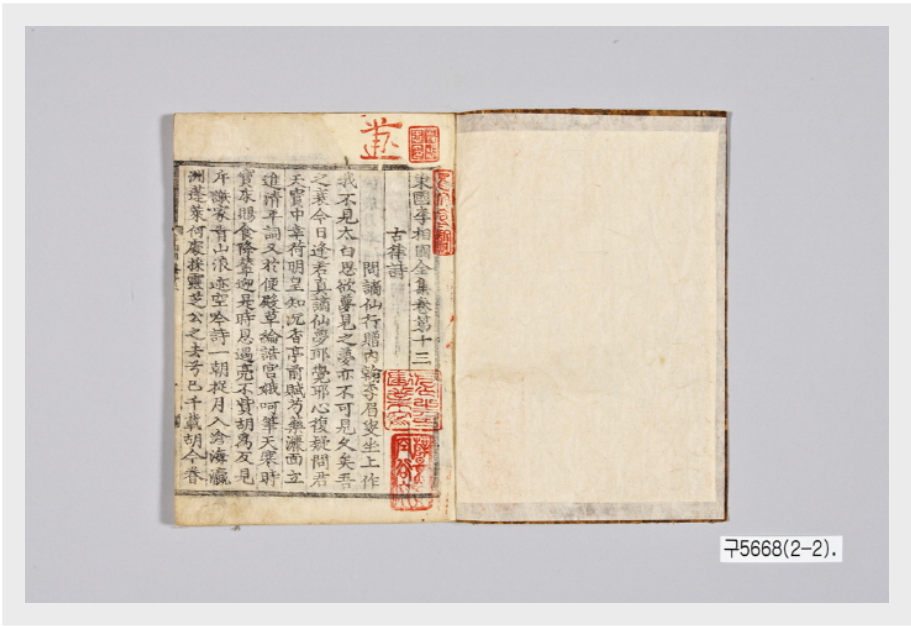 東國李相國全集卷第十三
古律詩
問謫仙行贈內翰李眉叟坐上作
我不見太白思欲夢見之夢亦不可見久矣吾
之衰今日逢君真謫仙夢耶覺耶心復疑問君
天寶中幸荷明皇知沉香亭前賦芍藥灑面立
進淸平詞又於便殿草綸誥宮娥呵筆天寒時
寶床賜食降輦迎是時恩遇亮不貲胡爲反見
斥謫家靑山浪迹空吟詩一朝捉月入滄海瀛
洲蓬萊何處採靈芝公之去兮已千載胡今眷
구5668(2-2).